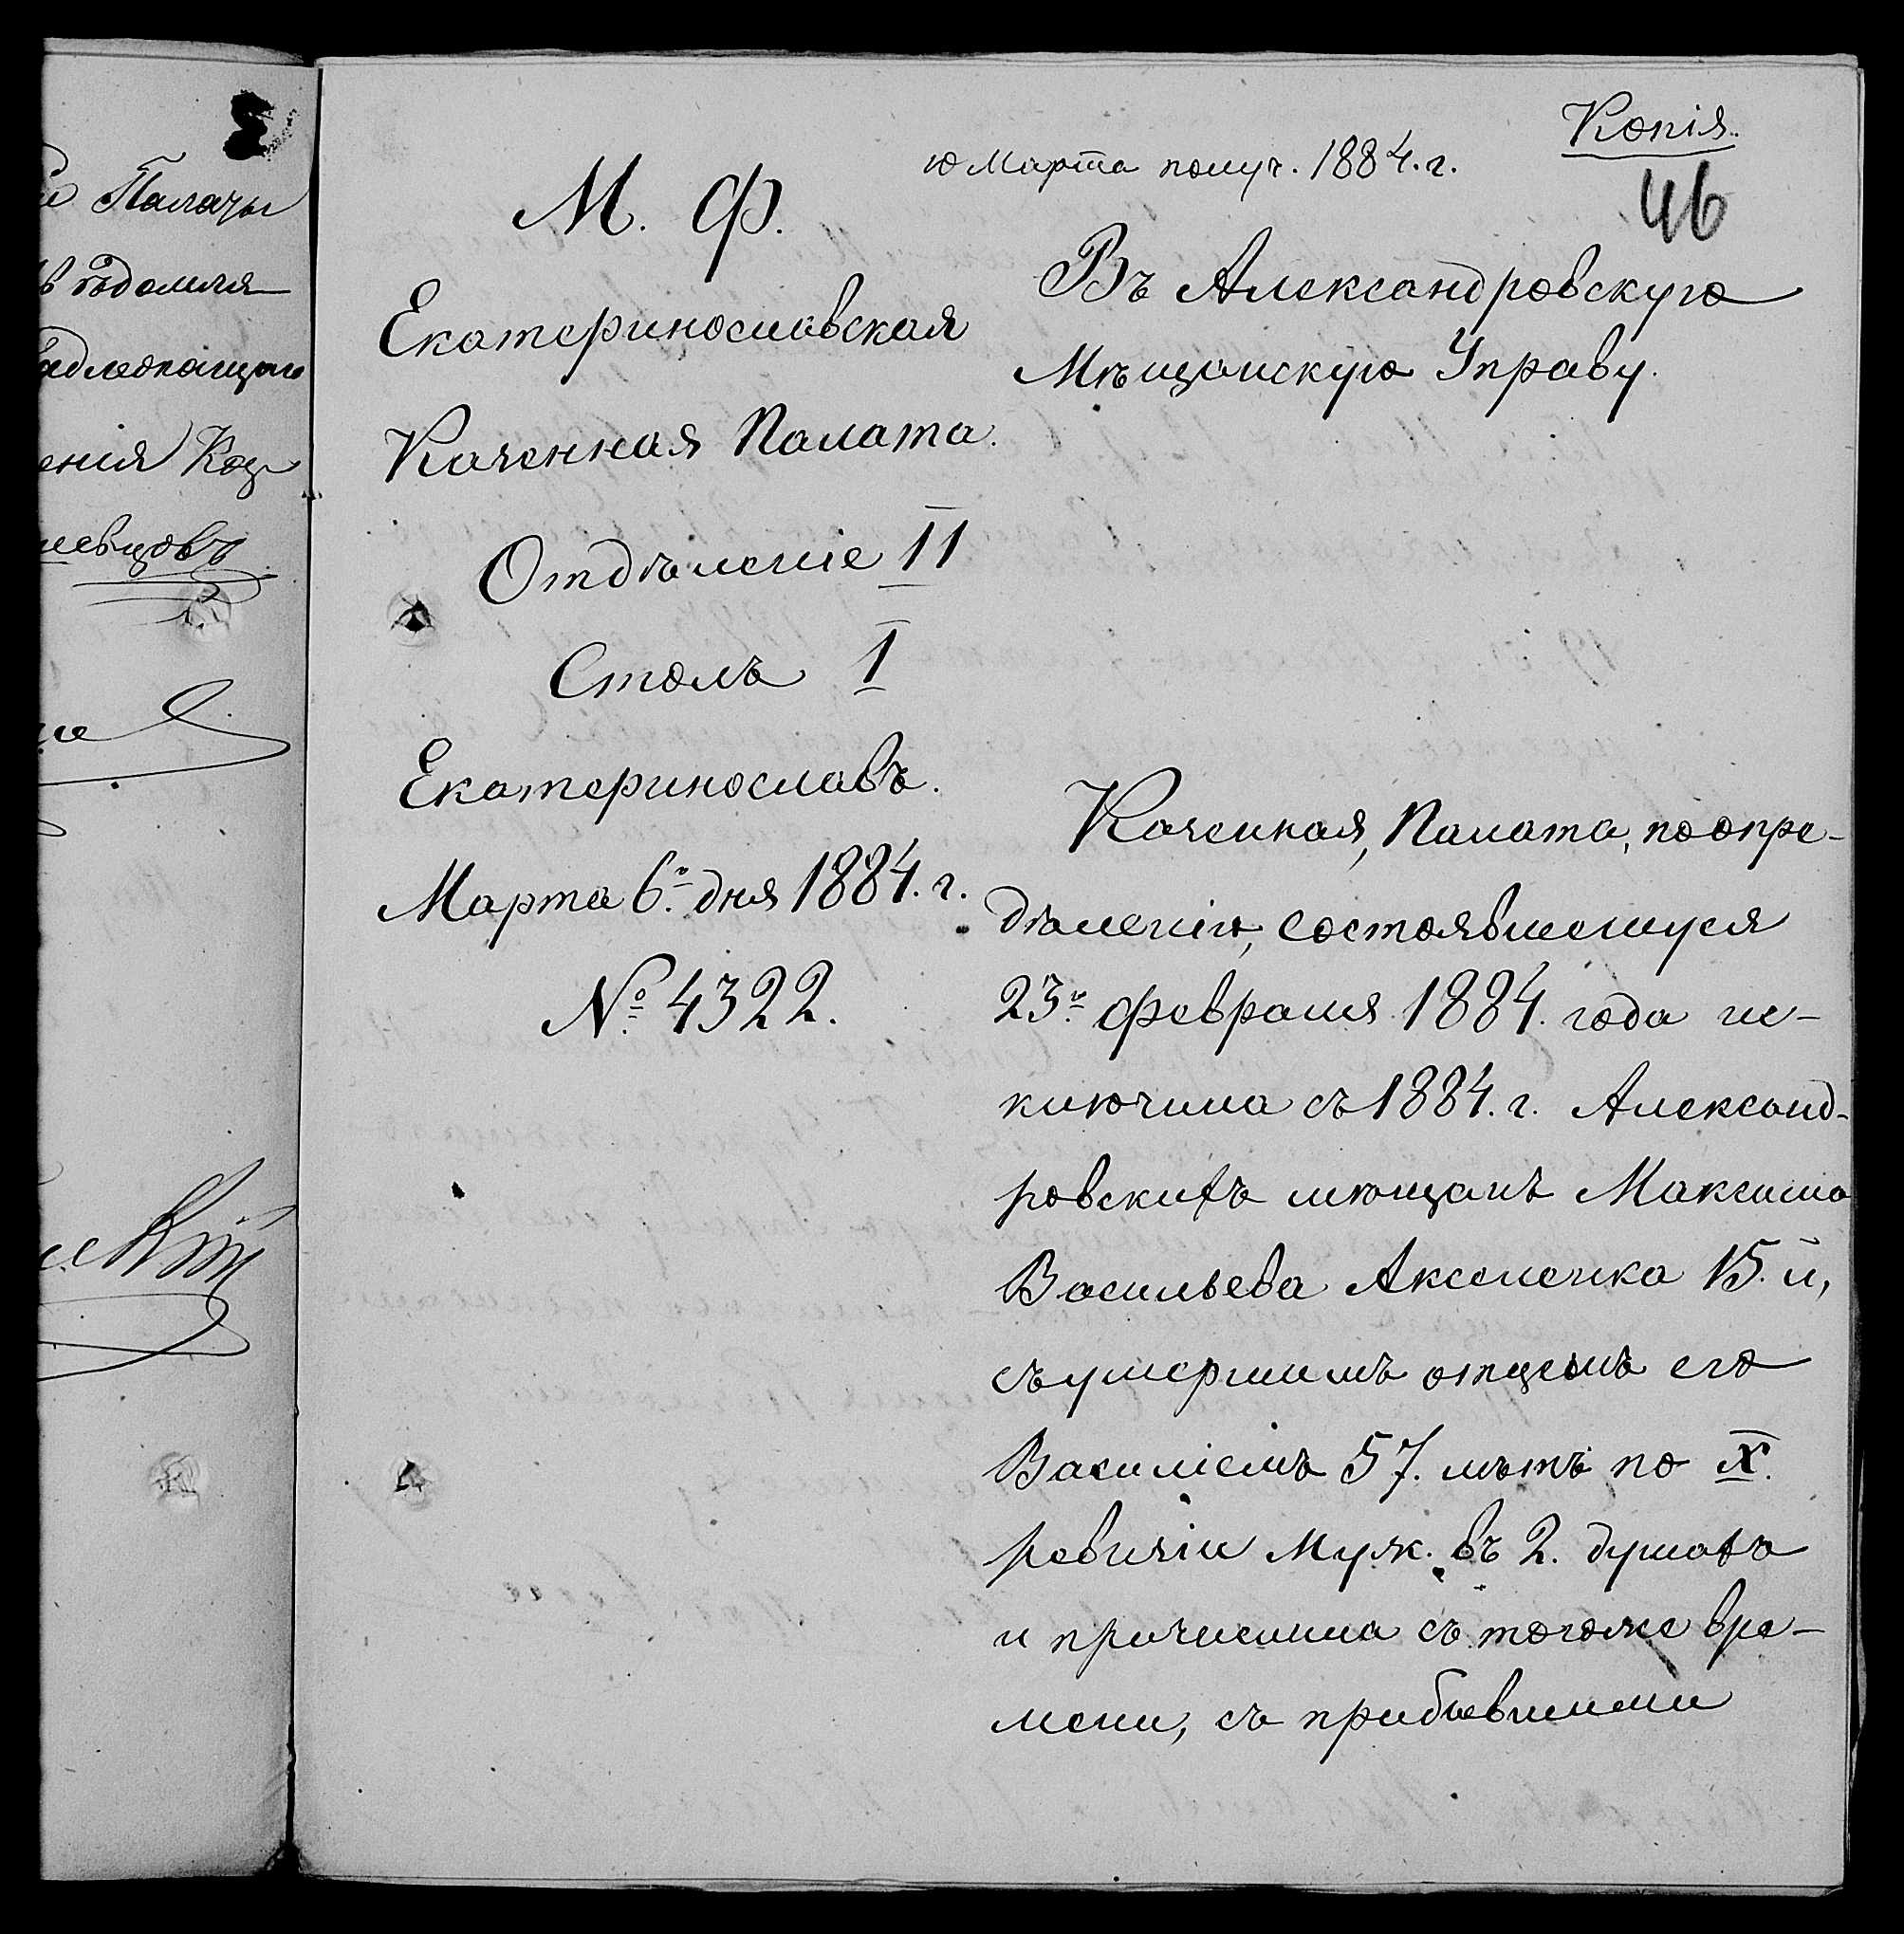 Копія.
10 Марта получ. 1884. г.
46
М. Ф.
Екатеринославская
Казенная Палата.
Отдѣленіе II
Столъ I
Екатеринославъ.
Марта 6го дня 1884. г.
№ 4322.
Въ Александровскую
Мѣщанскую Управу.
Казенная, Палата, по опре-
дѣленію, состоявшемуся
23го февраля 1884. года ис-
ключила съ 1884. г. Александ-
ровскихъ мѣщанъ Максима
Васильева Аксененка 15. й,
съ умершимъ отцемъ его
Василіемъ 57. лѣтъ по X.
ревизіи муж. въ 2. душахъ
и причислила съ тогоже вре-
мени, съ прибывшими
Палаты
енія Каз